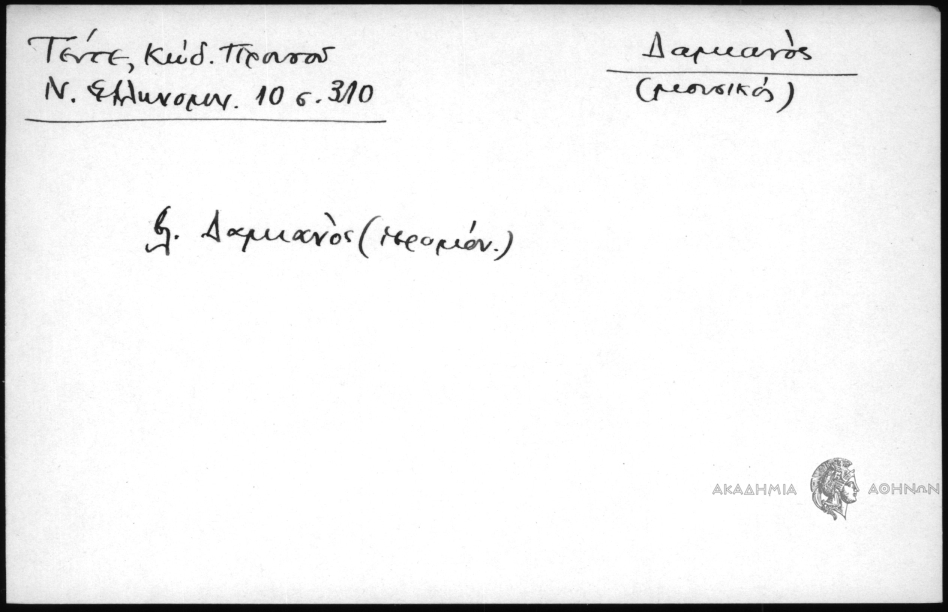 Τέντε, Κώδ. Προυσού
Ν. Ελληνομν. 10 σ. 310
Δαμιανὸς
(μουσικός)
βλ. Δαμιανὸς (ἱερομόν.)
ΑΚΑΔΗΜΙΑ ΑΘΗΝΩΝ